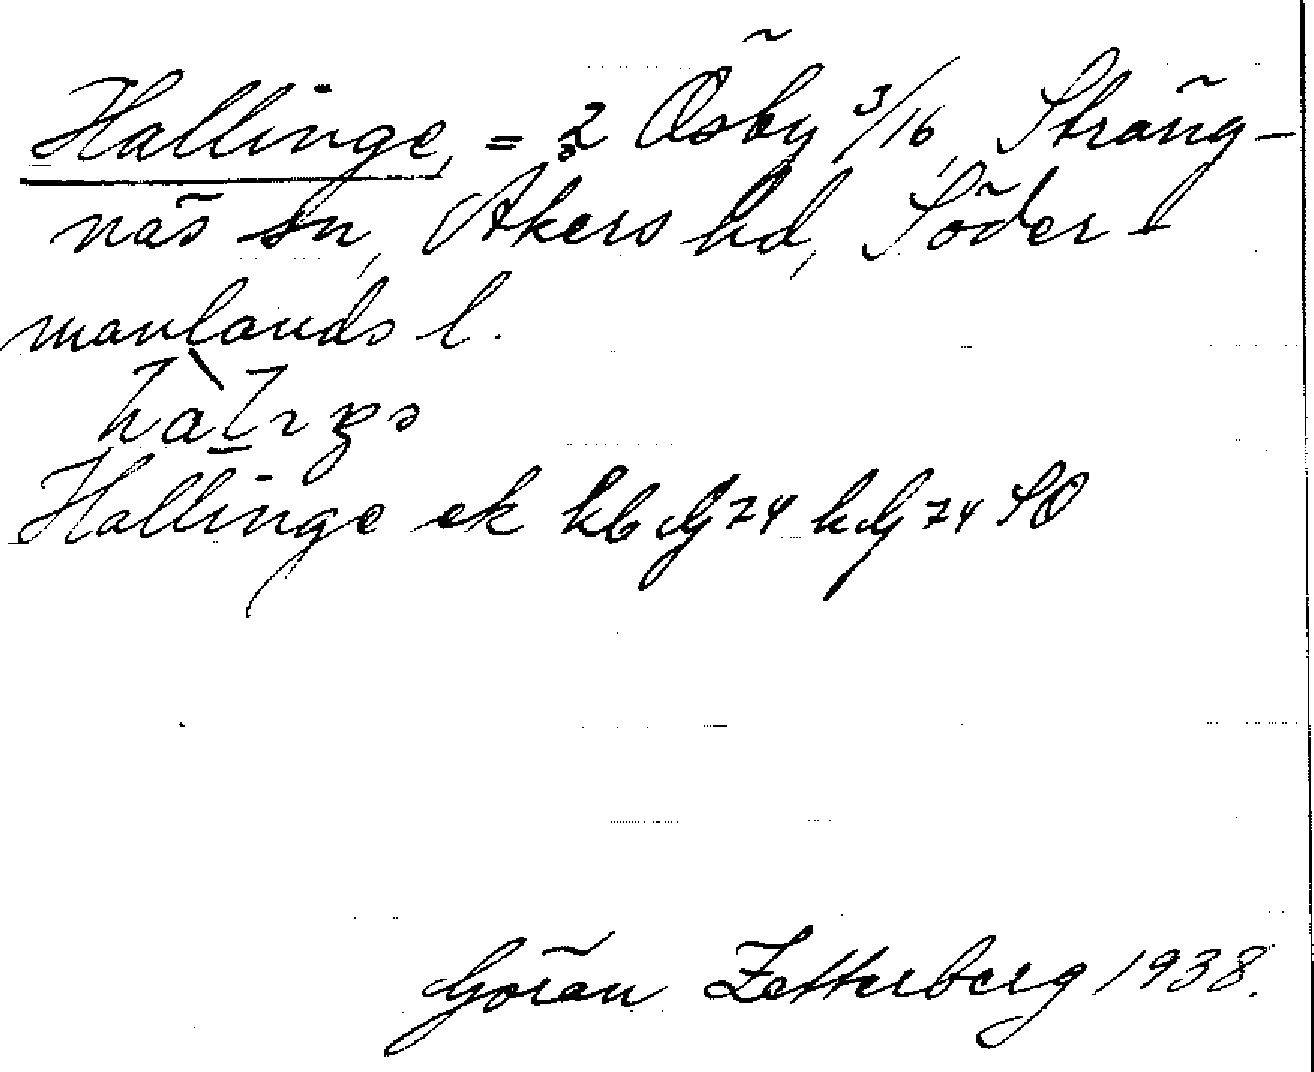 Hallinge, = 2 Ösby 3/16, Sträng-
näs sn, Åkers hd, Söder-
manlands l.
Hallinge ek hb dg 74 h dg 74 SO
Göran Zetterberg 1938.